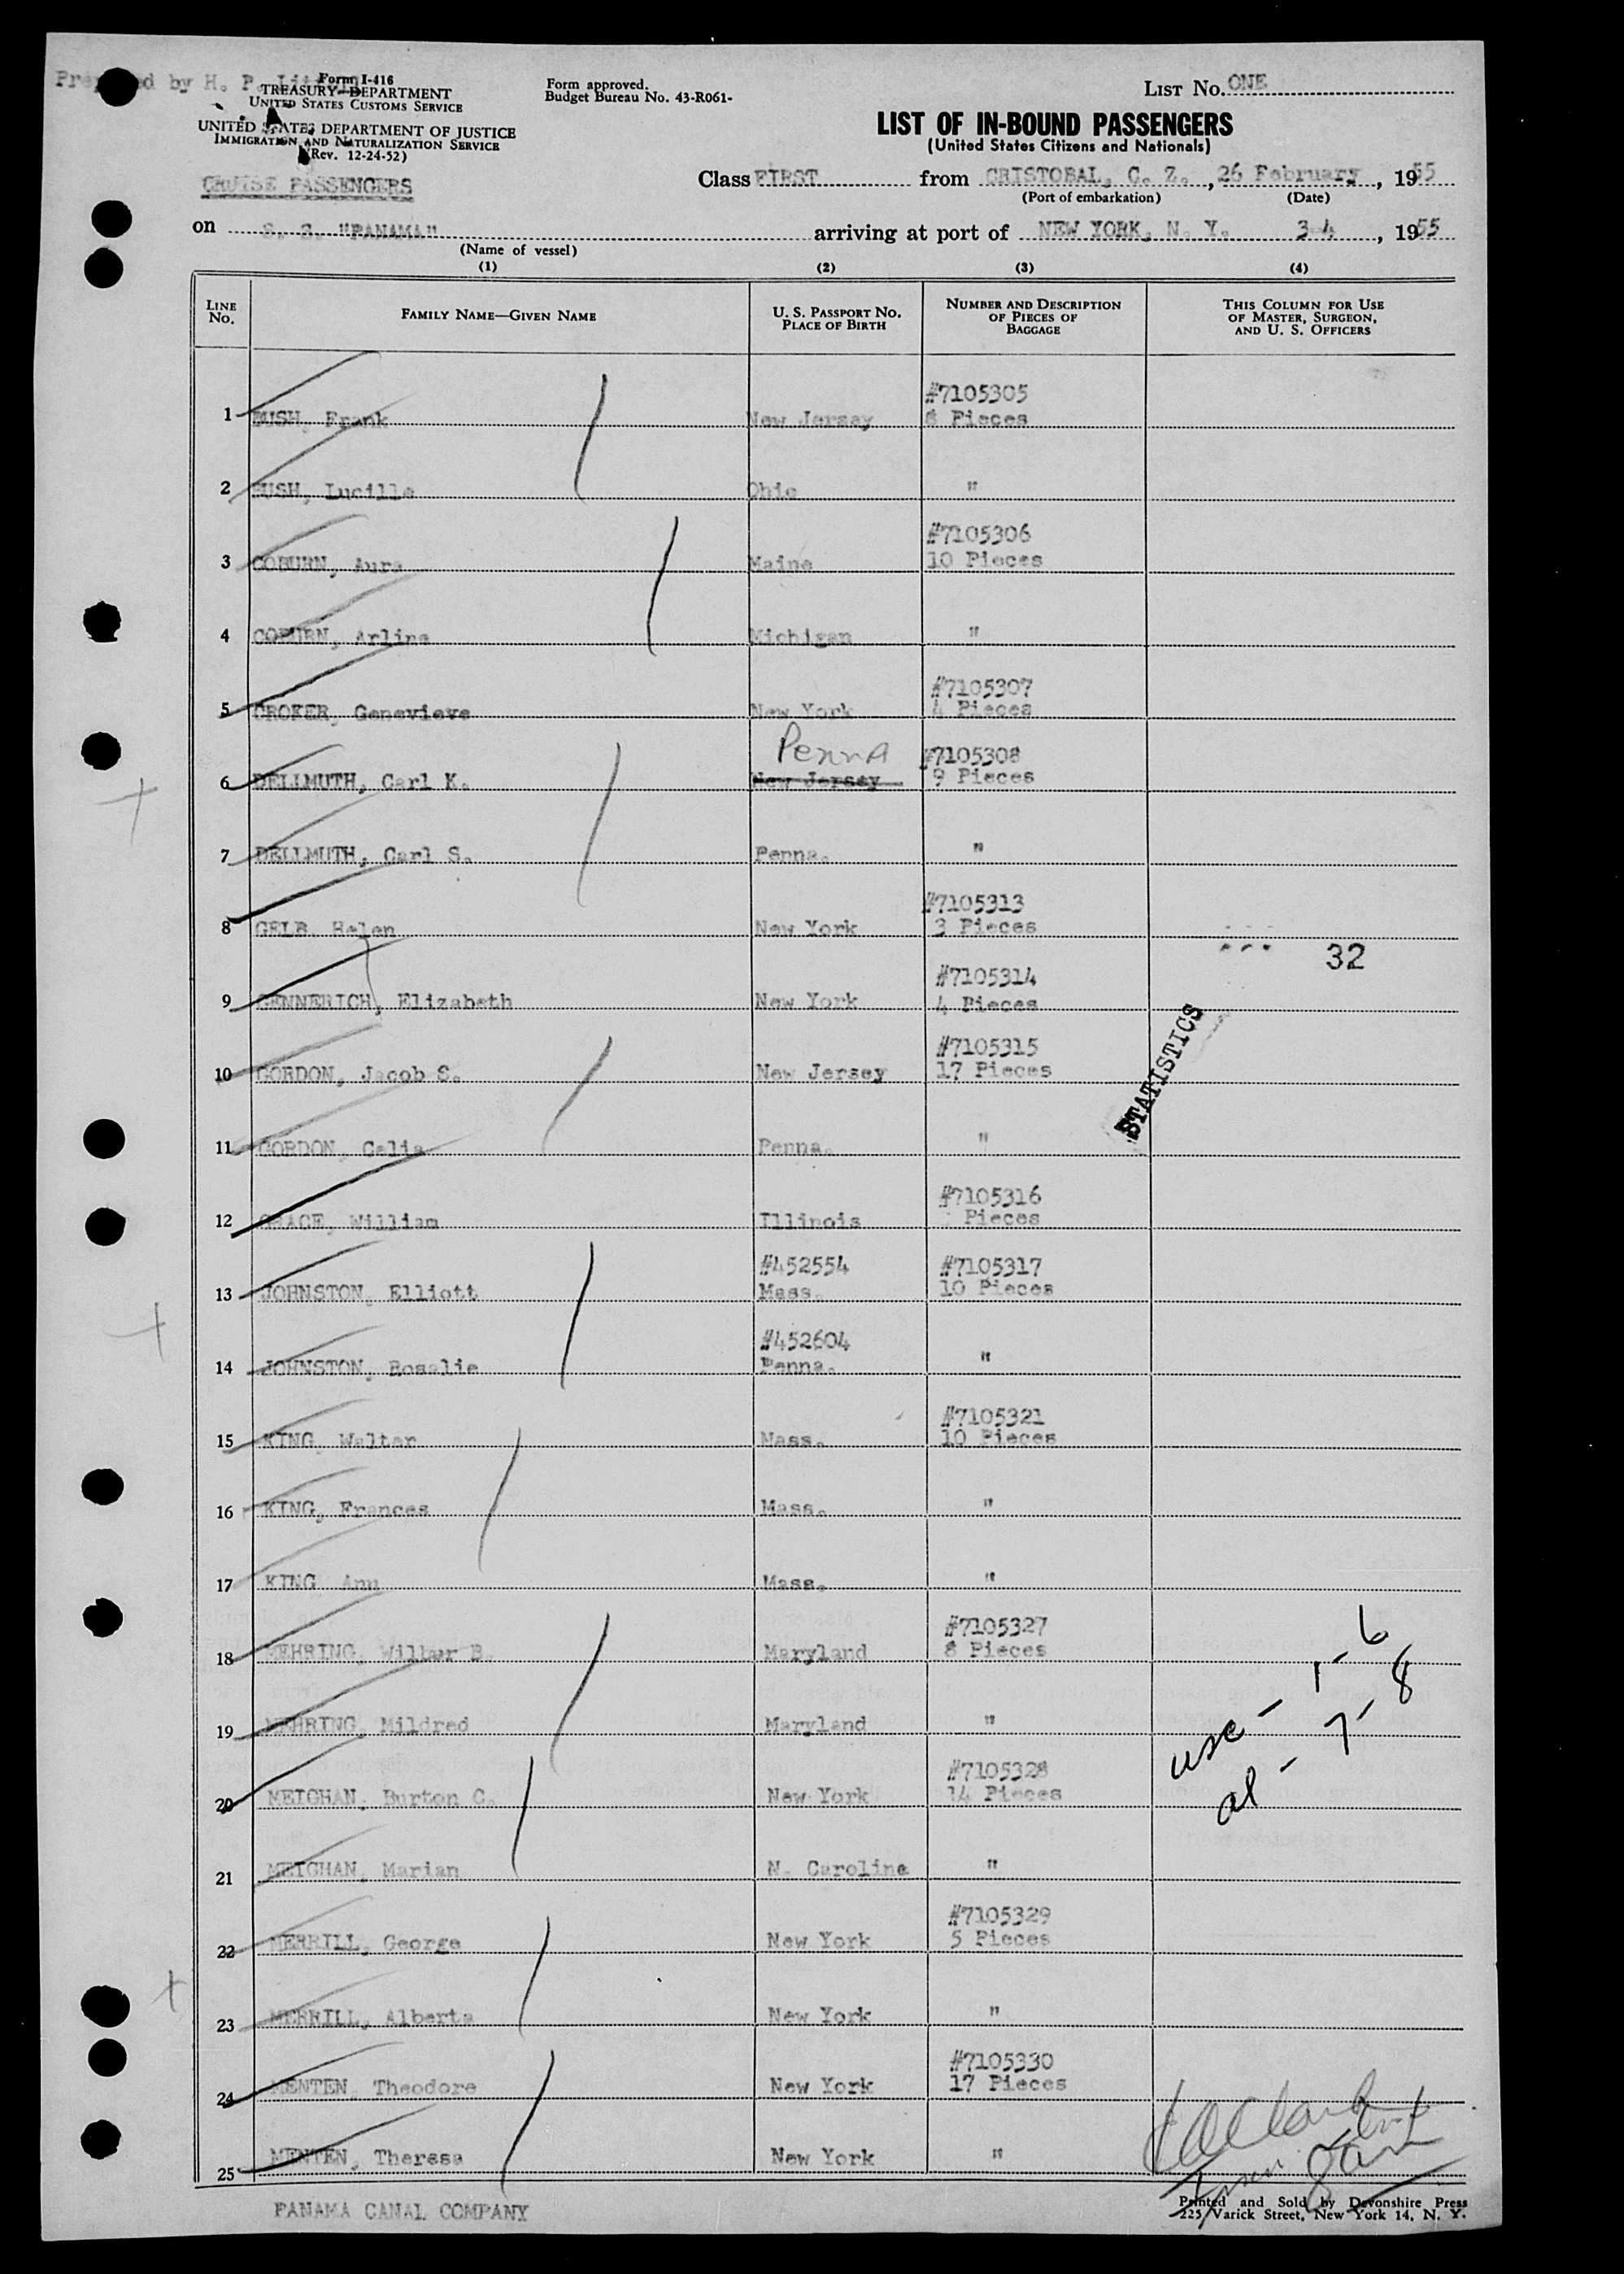 Prepared by H. P.
Form I-416
TREASURY DEPARTMENT
UNITED STATES CUSTOMS SERVICE
UNITED STATES DEPARTMENT OF JUSTICE
IMMIGRATION AND NATURALIZATION SERVICE
(Rev. 12-24-52)
Form approved.
Budget Bureau No. 43-R061-
LIST NO. ONE
LIST OF IN-BOUND PASSENGERS
(United States Citizens and Nationals)
CRUISE PASSENGERS
Class FIRST from CRISTOBAL, C. Z., 26 February, 1955
(Port of embarkation) (Date)
on S. S. "PANAMA" arriving at port of NEW YORK, N. Y. 3 4, 1955
(Name of vessel)
(1) (2) (3) (4)
LINE NO. FAMILY NAME—GIVEN NAME U. S. PASSPORT NO. PLACE OF BIRTH NUMBER AND DESCRIPTION OF PIECES OF BAGGAGE THIS COLUMN FOR USE OF MASTER, SURGEON, AND U. S. OFFICERS
#7105305
1 BUSH, Frank New Jersey 8 Pieces
2 BUSH, Lucille Ohio "
#7105306
3 COBURN, Aura Maine 10 Pieces
4 COBURN, Arline Michigan "
#7105307
5 CROKER, Genevieve New York 4 Pieces
Penna #7105308
6 DELLMUTH, Carl K. New Jersey 9 Pieces
7 DELLMUTH, Carl S. Penna. "
#7105313
8 GELB, Helen New York 3 Pieces
32
#7105314
9 GENNERICH, Elizabeth New York 4 Pieces
STATISTICS
#7105315
10 GORDON, Jacob S. New Jersey 17 Pieces
11 GORDON, Celia Penna. "
#7105316
12 GRACE, William Illinois Pieces
#452554 #7105317
13 JOHNSTON, Elliott Mass. 10 Pieces
#452604
14 JOHNSTON, Rosalie Penna. "
#7105321
15 KING, Walter Mass. 10 Pieces
16 KING, Frances Mass. "
17 KING, Ann Mass. "
#7105327
18 MEHRING, Wilbur B. Maryland 8 Pieces
usc - 1-6
19 MEHRING, Mildred Maryland "
al - 7-8
#7105328
20 MEIGHAN, Burton C. New York 14 Pieces
21 MEIGHAN, Marian N. Carolina "
#7105329
22 MERRILL, George New York 5 Pieces
23 MERRILL, Alberta New York "
#7105330
24 MENTEN, Theodore New York 17 Pieces
25 MENTEN, Theresa New York "
PANAMA CANAL COMPANY
Printed and Sold by Devonshire Press
225 Varick Street, New York 14, N. Y.